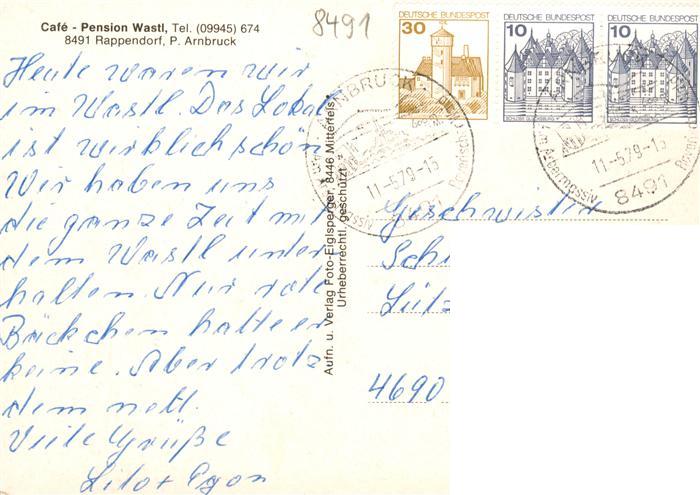 Café - Pension Wastl, Tel. (09945) 674
8491 Rappendorf, P. Arnbruck
8491
DEUTSCHE BUNDESPOST
30
DEUTSCHE BUNDESPOST
10
DEUTSCHE BUNDESPOST
10
ARNBRUCK
11-5.79-15
11-5.79-15
8491
Heute waren wir
im Wastl. Das Lokal
ist wirklich schön
Wir haben uns
die ganze Zeit mit
dem Wastl unter
halten. Nur rote
Bäckchen hatte er
keine. Aber trotz
dem nett.
Viele Grüße
Lilo + Egon
Aufn. u. Verlag Foto-Eiglsperger, 8446 Mitterfels,
Urheberrechtl. geschützt
Geschwister
Sch
Lütz
4690